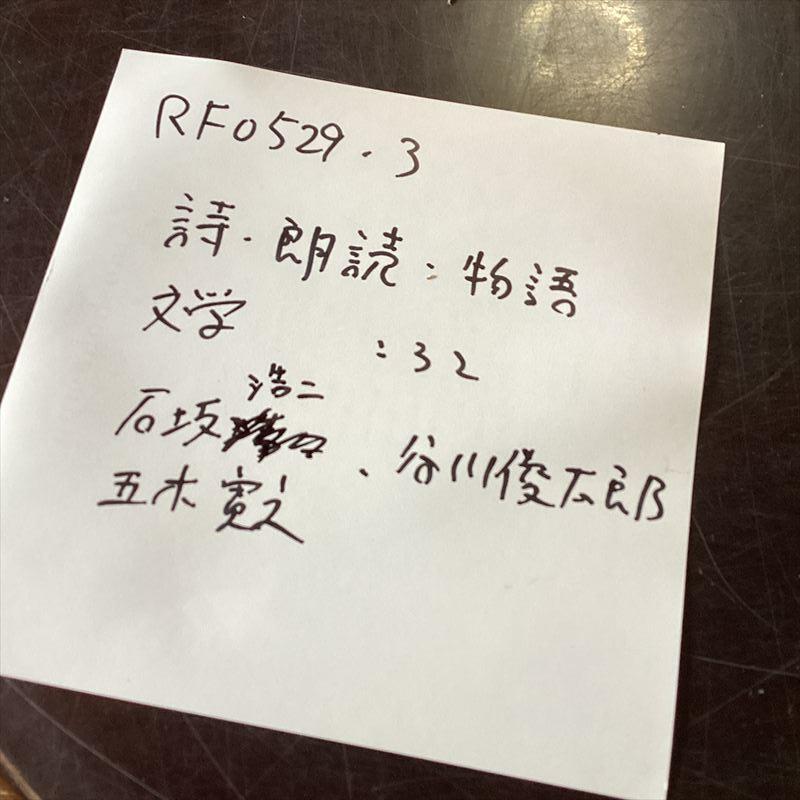 RF0529.3
詩.朗読:物語
文学 :32
石坂浩二、谷川俊太郎
五木寛之